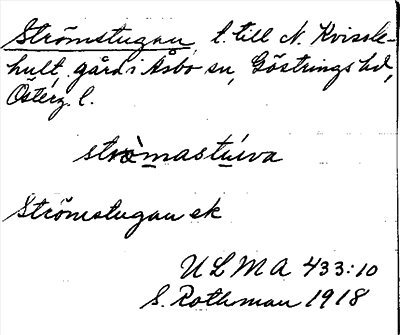 Strömstugan, t. till N. Kvissle-
hult, gård i Åsbo sn, Göstrings hd,
Österg. l.
Strömstugan ek
ULMA 433:10
S. Rothman 1918